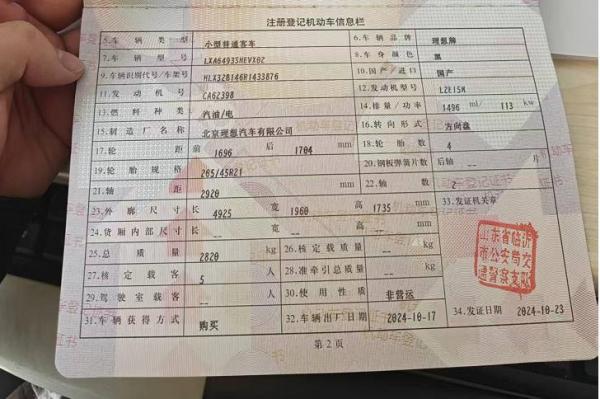 注册登记机动车信息栏
5.车辆类型 小型普通客车 6.车辆品牌 理想牌
7.车辆型号 LXA6493SHEVX02 8.车身颜色 黑
9.车辆识别代号/车架号 HLX32B146R1433876 10.国产/进口 国产
11.发动机号 CA62398 12.发动机型号 L2E15M
13.燃料种类 汽油/电 14.排量/功率 1496 ml/ 113 kw
15.制造厂名称 北京理想汽车有限公司 16.转向形式 方向盘
17.轮距 前 1696 后 1704 mm 18.轮胎数 4
19.轮胎规格 265/45R21 20.钢板弹簧片数 后轴 -- 片
21.轴距 2920 mm 22.轴数 2
23.外廓尺寸 长 4925 宽 1960 高 1735 mm 33.发证机关章
24.货厢内部尺寸 长 -- 宽 -- 高 -- mm
25.总质量 2820 kg 26.核定载质量 -- kg
27.核定载客 5 人 28.准牵引总质量 -- kg
29.驾驶室载客 -- 人 30.使用性质 非营运
31.车辆获得方式 购买 32.车辆出厂日期 2024-10-17 34.发证日期 2024-10-23
山东省临沂
市公安局交
通警察支队
第2页